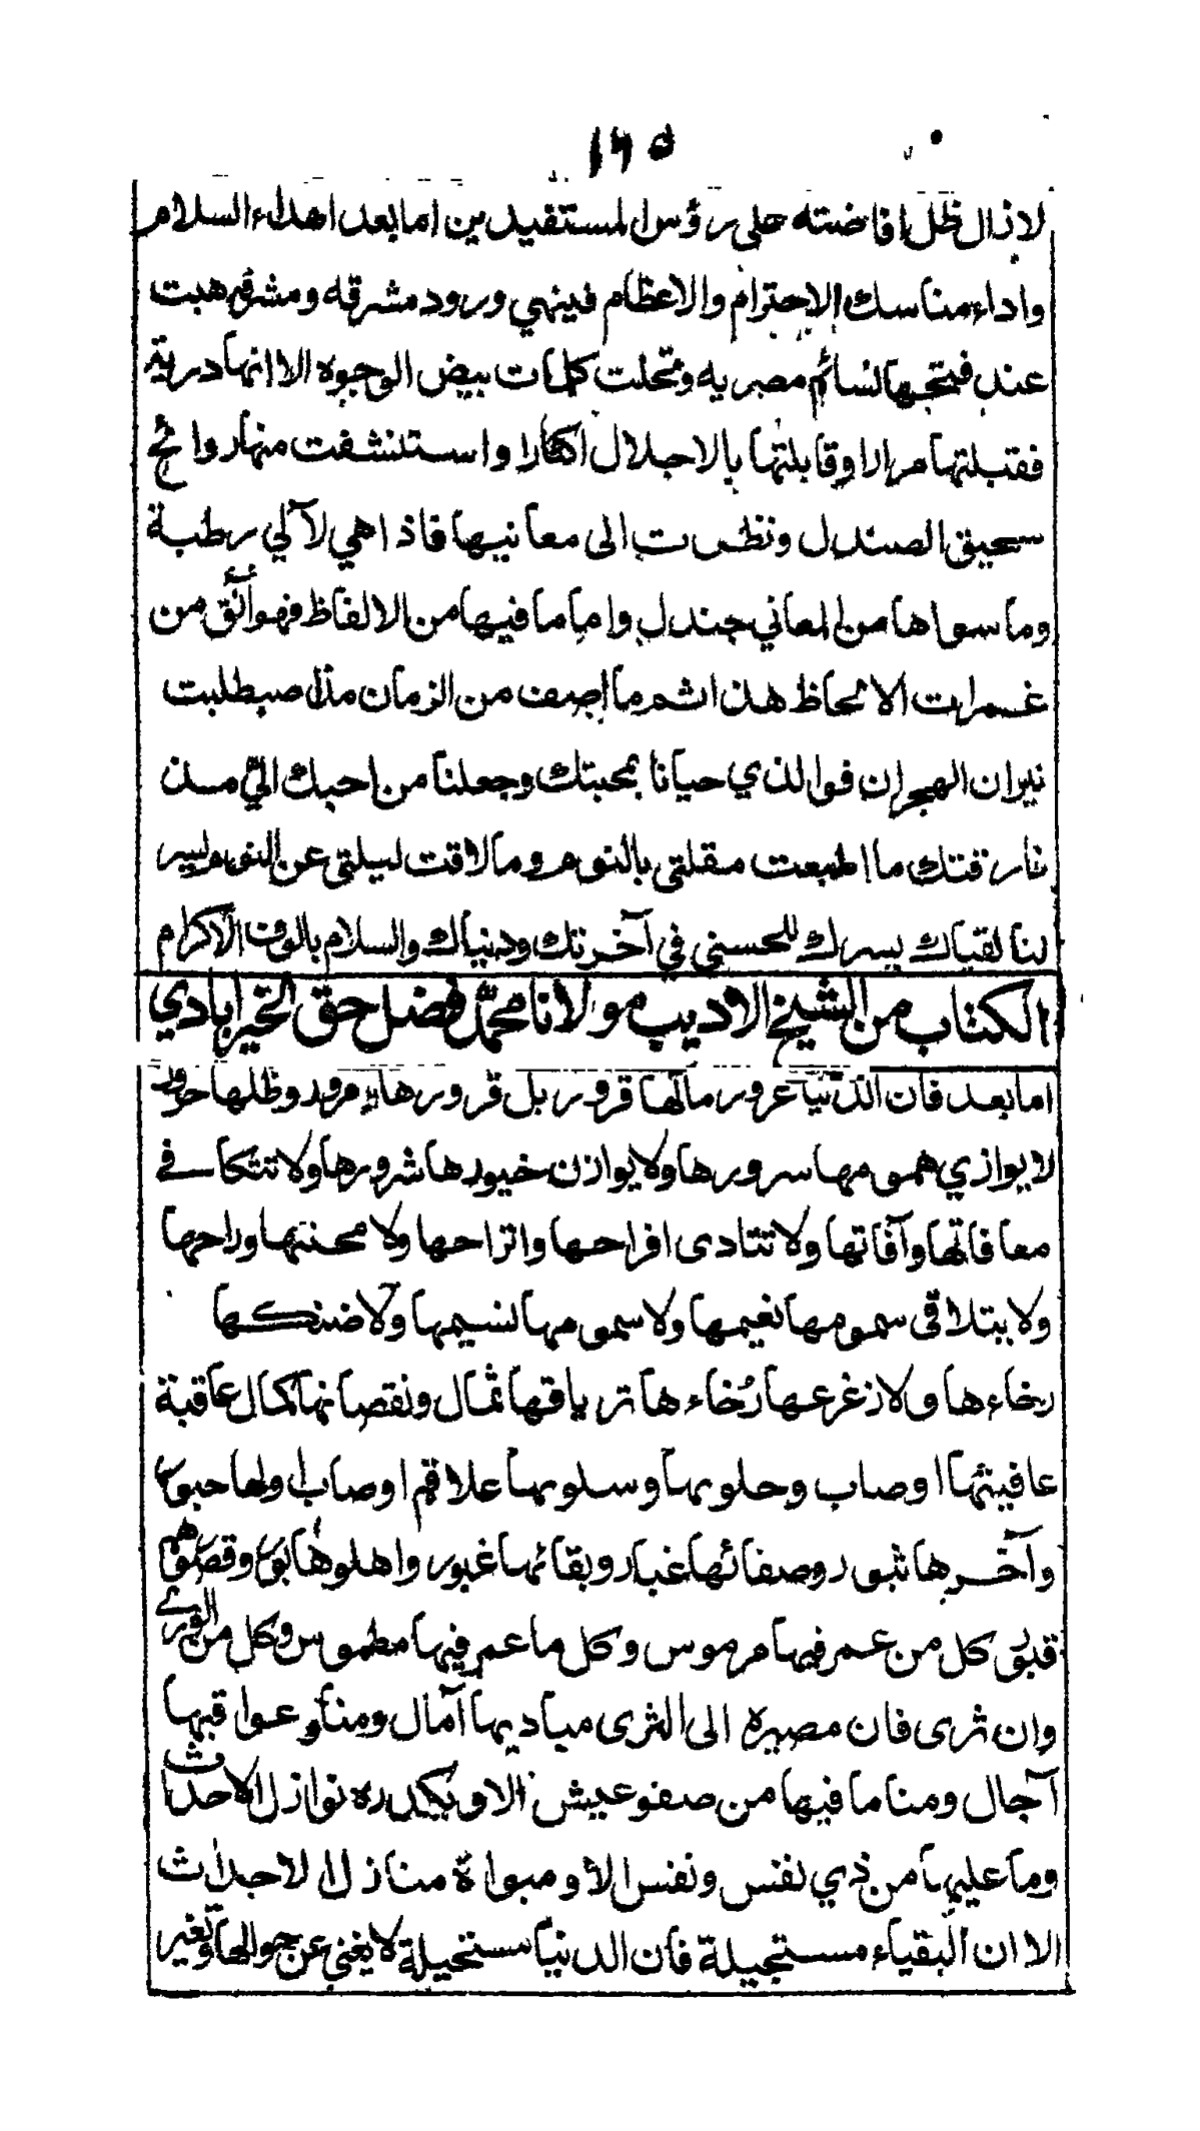 ١٦٥
لا زال ظل افاضته على رؤس المستفيدين اما بعد اهداء السلام
واداء مناسك الاحترام والاعظام فينهي ورود مشرقه ومشرفه هبت
عند نسائم مصريه وتحلت كلمات بيض الوجوه الا انها درية
فقبلتها مرارا وقابلتها بالاجلال اكثارا واستنشقت منها روائح
سحيق الصندل ونظرت الى معانيها فاذا هي لآلي رطبة
وما سواها من المعاني جندل واما ما فيها من الالفاظ فهو آنق من
غمرات الالحاظ هذا ثم ما اصف من الزمان مذ
نيران الهجران فوالذي حيانا بمحبتك وجعلنا من احبك الي مذ
فارقتك ما مقلتي بالنوم وما لاقت ليلتي عن
لنا لقياك يسرك للحسنى في آخرتك ودنياك والسلام بالوف الاكرام
الكتاب من الشيخ الاديب مولانا محمد فضل حق الخيرابادي
اما بعد فان الدنيا غرور مالها قرور بل قرورها وظلها حرور
لا يوازي همومها سرورها ولا يوازن خيورها شرورها ولا تتكافى
معافاتها وآفاتها ولا تتادى افراحها واتراحها ولا محنتها وراحها
ولا يتلاقى سمومها نعيمها ولا سمومها نسيمها ولا ضنكها
رخاءها ولا زعزعها رخاءها ترياقها ثمال ونقصانها كمال عاقبة
عافيتها اوصاب وحلوبها وسلوبها علاقم اوصاب ولها حبور
وآخرها ثبور وصفائها غبار وبقائها غبور واهلوها بور وقصورهم
قبور كل من عمر فيها مرموس وكل ما عمر فيها مطموس وكل من الورى
وان ثرى فان مصيره الى الثرى مباديها آمال ومنأو عواقبها
آجال ومنا ما فيها من صفو عيش الا ويكدره نوازل الاحداث
وما عليها من ذي نفس ونفس الا ومبواة منازل الاجداث
الا ان البقياء مستجيلة فان الدنيا مستحيلة لا يغني عن حوالها وتغير